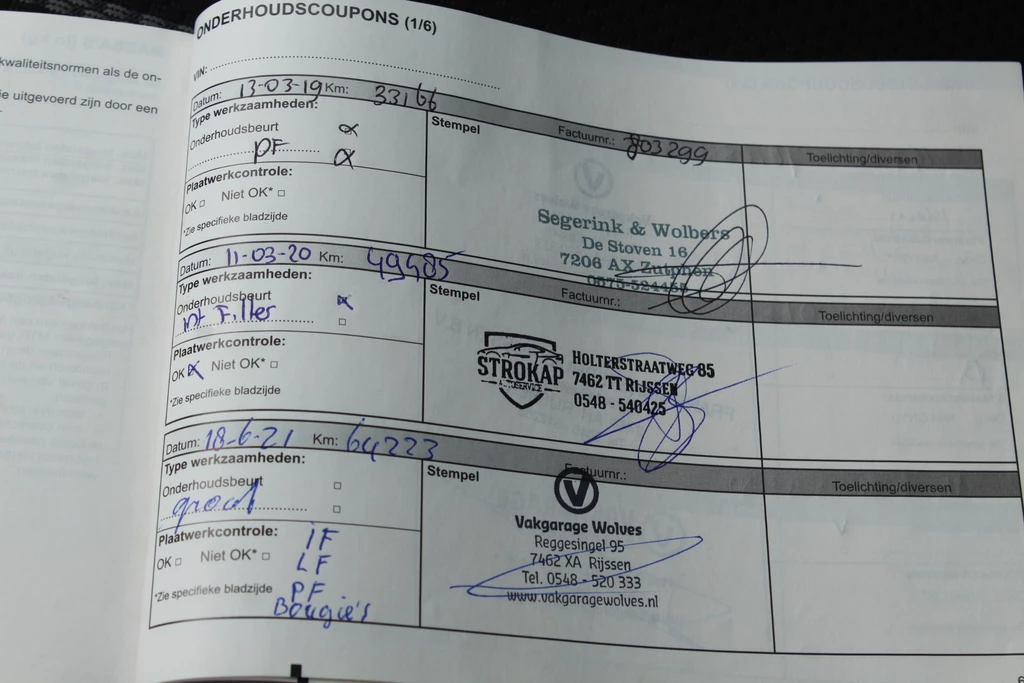 kwaliteitsnormen als de on-
ie uitgevoerd zijn door een
ONDERHOUDSCOUPONS (1/6)
VIN:
Datum: 13-03-19 Km: 33166
Type werkzaamheden:
Onderhoudsbeurt
PF
Plaatwerkcontrole:
OK □ Niet OK* □
*Zie specifieke bladzijde
Stempel
Factuurnr.: 803299
Toelichting/diversen
Segerink & Wolbers
De Stoven 16
7206 AX Zutphen
0575-524455
Datum: 11-03-20 Km: 49485
Type werkzaamheden:
Onderhoudsbeurt
int Filter □
Plaatwerkcontrole:
OK Niet OK* □
*Zie specifieke bladzijde
Stempel
Factuurnr.:
Toelichting/diversen
STROKAP
AUTOSERVICE
HOLTERSTRAATWEG 85
7462 TT RIJSSEN
0548 - 540425
Datum: 18-6-21 Km: 64223
Type werkzaamheden:
Onderhoudsbeurt □
groot □
Plaatwerkcontrole:
OK □ Niet OK* □
*Zie specifieke bladzijde
IF
LF
PF
Bougie's
Stempel
Factuurnr.:
Toelichting/diversen
V
Vakgarage Wolves
Reggesingel 95
7462 XA Rijssen
Tel. 0548 - 520 333
www.vakgaragewolves.nl